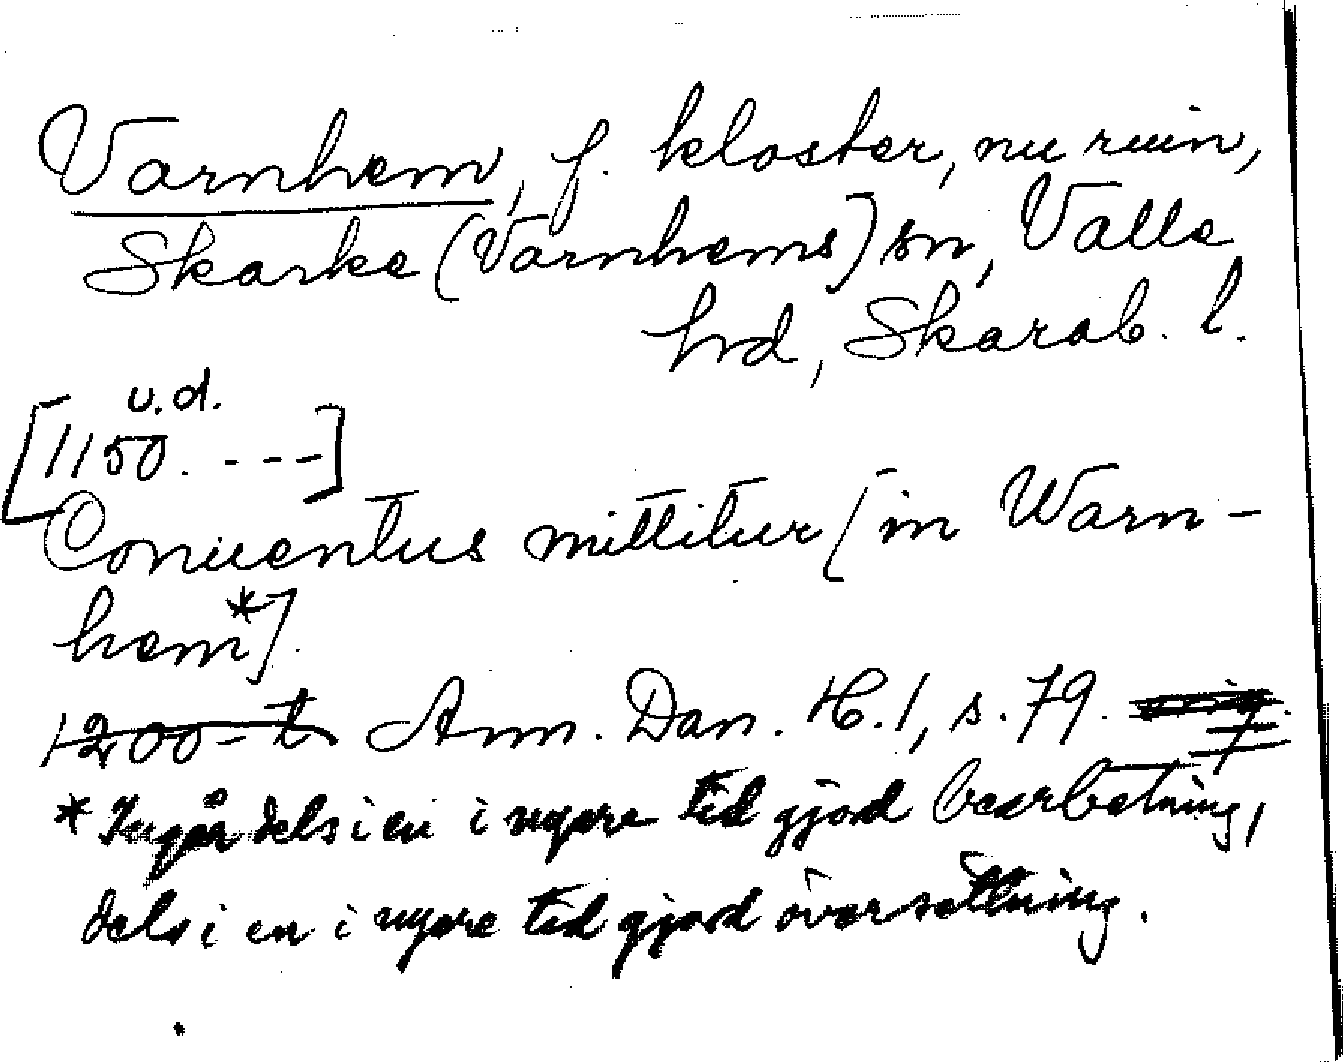 Varnhem, f. kloster, nu ruin,
Skarke (Varnhems) sn, Valle
hd, Skarab. l.
u.d.
[1150. ---]
Conuentus mittitur [in Warn-
hem*].
1200-t Ann. Dan. H. 1, s. 79.
* Ingår dels i en i nyare tid gjord bearbetning,
dels i en i nyare tid gjord översättning.